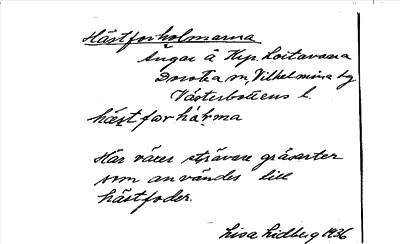 Hästforholmarna
ängar å Krp. Loitavara
Dorotea m, Vilhelmina tg
Västerbottens l.
häst far hȧrma
Här växer strävare gräsarter
som användes till
hästfoder.
Lisa Lidberg 1936